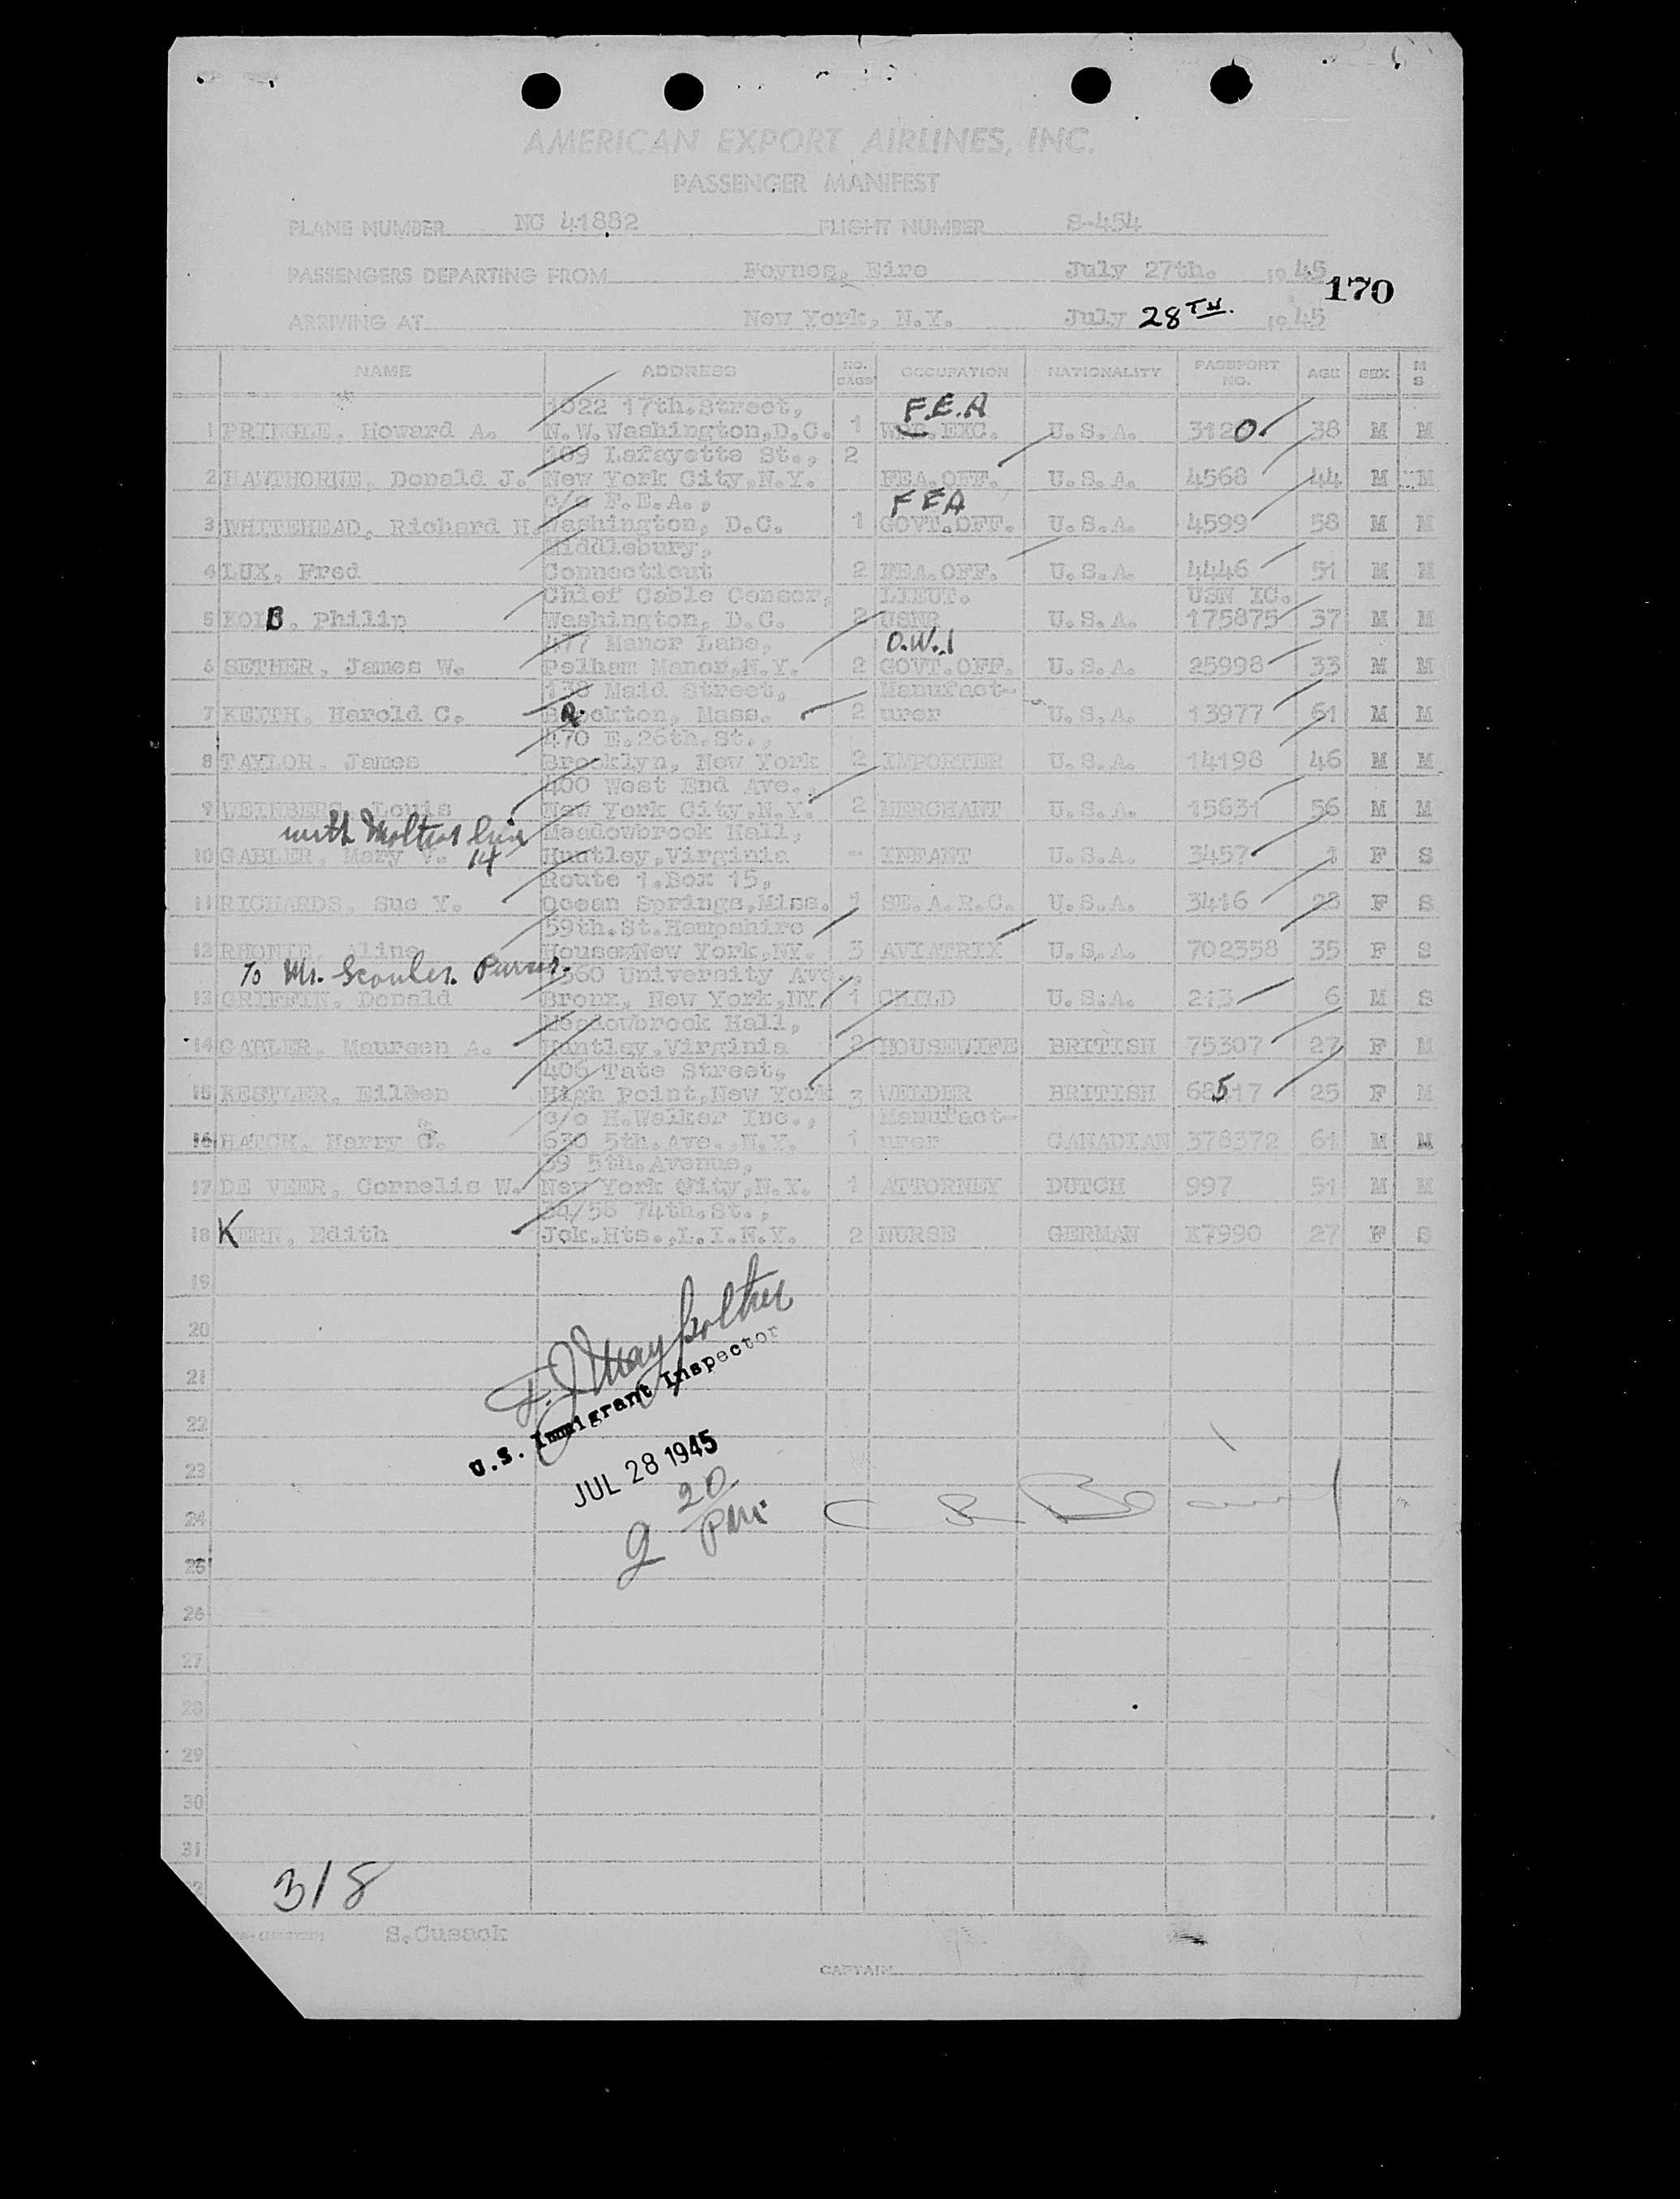 AMERICAN EXPORT AIRLINES, INC.
PASSENGER MANIFEST
PLANE NUMBER NC 41882 FLIGHT NUMBER S-454
PASSENGERS DEPARTING FROM Foynes, Eire July 27th. 1945
170
ARRIVING AT New York, N.Y. July 28TH. 1945
NAME ADDRESS NO. BAGS OCCUPATION NATIONALITY PASSPORT NO. AGE SEX M S
1022 17th.Street, F.E.A
1 PRINGLE, Howard A. N.W.Washington,D.C. 1 EXC. U.S.A. 3120. 38 M M
109 Lafayette St., 2
2 HAWTHORNE, Donald J. New York City,N.Y. FEA.OFF. U.S.A. 4568 44 M M
c/o F.E.A., FEA
3 WHITEHEAD, Richard H. Washington, D.C. 1 GOVT.OFF. U.S.A. 4599 58 M M
Middlebury,
4 LUX, Fred Connecticut 2 FEA.OFF. U.S.A. 4446 51 M M
Chief Cable Censor, LIEUT. USN IC.
5 KOLB, Philip Washington, D.C. 2 USNR U.S.A. 175875 37 M M
477 Manor Lane, O.W.I
6 SETHER, James W. Pelham Manor,N.Y. 2 GOVT.OFF. U.S.A. 25998 33 M M
138 Maid Street, Manufact-
7 KEITH, Harold C. Brockton, Mass. 2 urer U.S.A. 13977 61 M M
470 E.26th.St.,
8 TAYLOR, James Brooklyn, New York 2 IMPORTER U.S.A. 14198 46 M M
400 West End Ave.,
9 WEINBERG, Louis New York City,N.Y. 2 MERCHANT U.S.A. 15631 56 M M
with Mother line 14 Meadowbrook Hall,
10 GABLER, Mary V. Huntley,Virginia - INFANT U.S.A. 3457 1 F S
Route 1.Box 15,
11 RICHARDS, Sue Y. Ocean Springs,Miss. 1 SE.A.R.C. U.S.A. 3416 28 F S
59th.St.Hampshire
12 RHONIE, Aline House,New York,NY. 3 AVIATRIX U.S.A. 702358 35 F S
To Mr. Scouler. Purser. 1560 University Ave.,
13 GRIFFIN, Donald Bronx, New York,NY 1 CHILD U.S.A. 213 6 M S
Meadowbrook Hall,
14 GABLER, Maureen A. Huntley,Virginia 2 HOUSEWIFE BRITISH 75307 27 F M
406 Tate Street,
15 KESTLER, Eileen High Point,New York 3 WELDER BRITISH 68517 25 F M
c/o H.Walker Inc., Manufact-
16 HATCH, Harry C. 630 5th.Ave.,N.Y. 1 urer CANADIAN 378372 61 M M
59 5th.Avenue,
17 DE VEER, Cornelis W. New York City,N.Y. 1 ATTORNEY DUTCH 997 51 M M
74th.St.,
18 KERN, Edith Jck.Hts.,L.I.N.Y. 2 NURSE GERMAN K7990 27 F S
19
20
21
U.S. Immigrant Inspector
22
JUL 28 1945
23
24
9 20 PM
25
26
27
28
29
30
31
318
S.Cusack
CAPTAIN